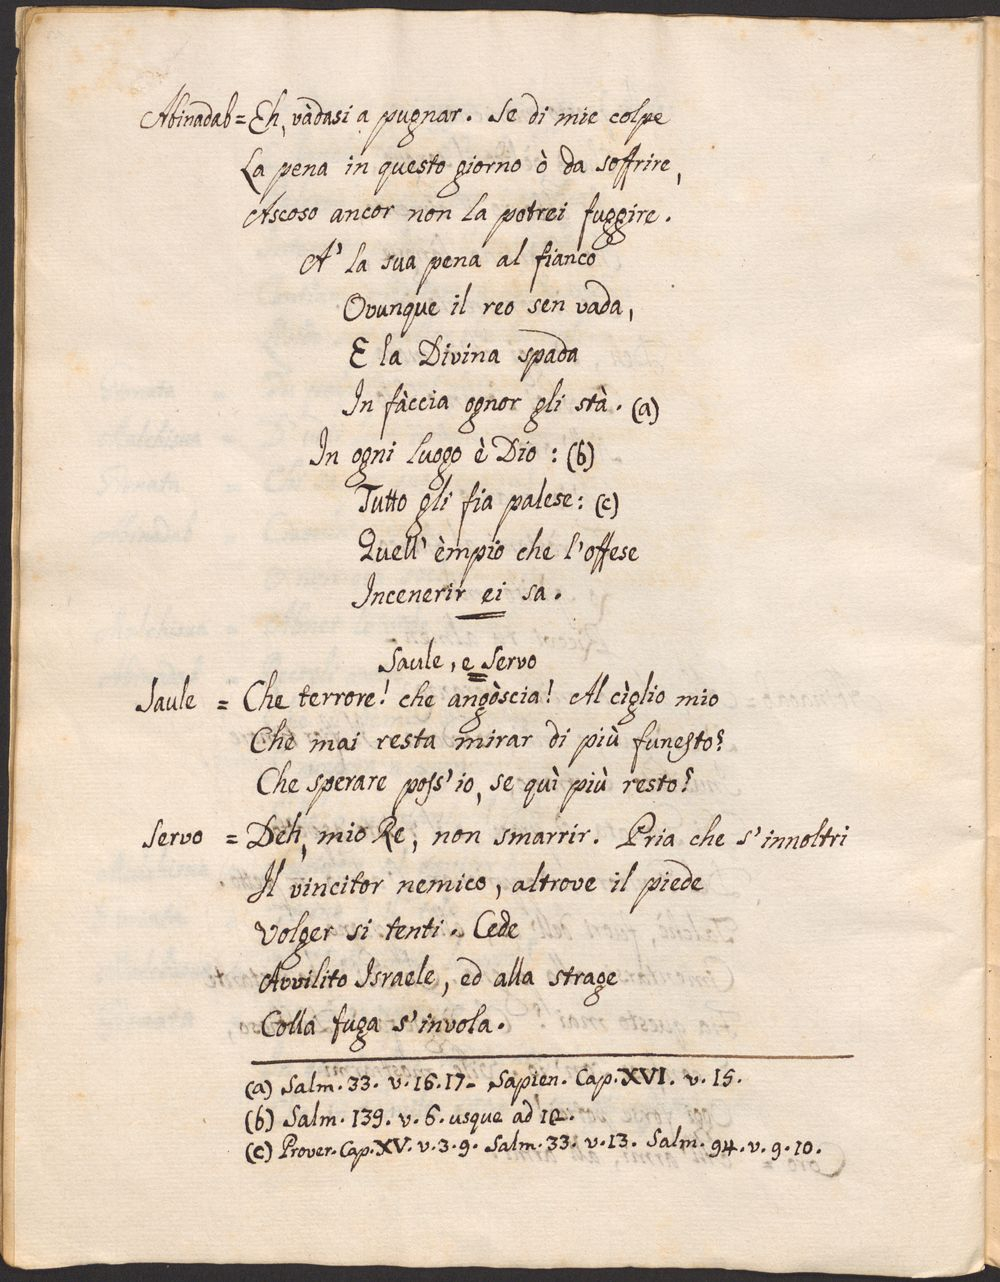 Abinadab = Eh, vàdasi a pugnar. Se di mie colpe
La pena in questo giorno ò da soffrire,
Ascoso ancor non la potrei fuggire.
A' la sua pena al fianco
Ovunque il reo sen vada,
E la Divina spada
In fàccia ognor gli stà. (a)
In ogni luogo è Dio : (b)
Tutto gli fia palese : (c)
Quell' èmpio che l'offese
Incenerir ei sa.
Saule, e Servo
Saule = Che terrore! che angòscia! Al cìglio mio
Che mai resta mirar di più funesto?
Che sperare poss'io, se quì più resto?
Servo = Deh, mio Re, non smarrir. Pria che s'innoltri
Il vincitor nemico, altrove il piede
Volger si tenti. Cede
Avvilito Israele, ed alla strage
Colla fuga s'invola.
(a) Salm. 33. v. 16. 17 - Sapien. Cap. XVI. v. 15.
(b) Salm. 139. v. 6. usque ad 12.
(c) Prover. Cap. XV. v. 3. 9. Salm. 33. v. 13. Salm. 94. v. 9. 10.